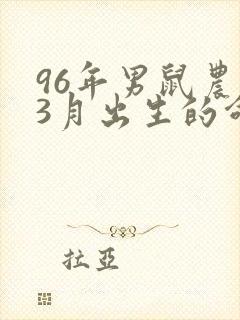 96年男鼠農
3月出生的命
拉亞